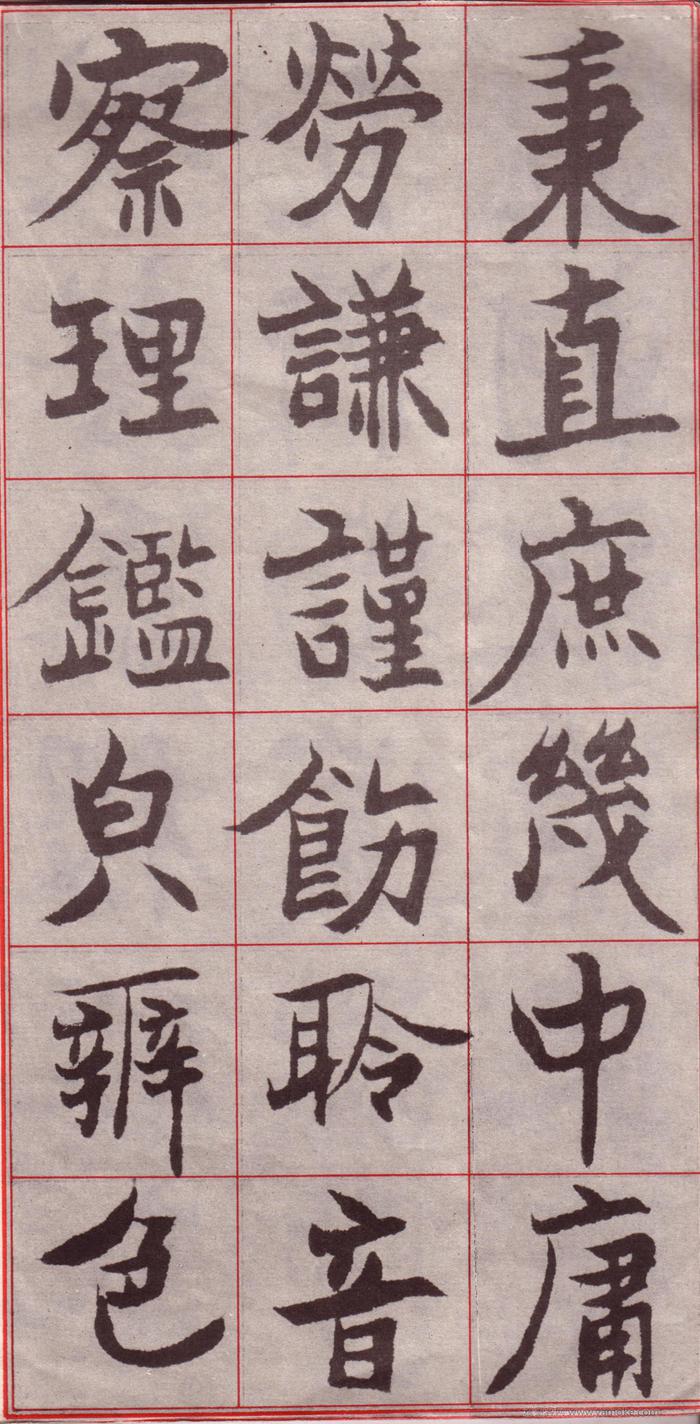 秉直庶幾中庸
勞謙謹飭聆音
察理鑑皃辨色